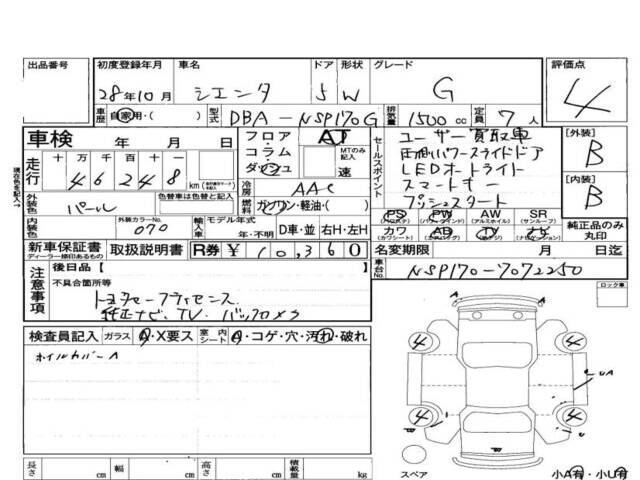 出品番号 初度登録年月 車名 ドア 形状 グレード 評価点
28年10月 シエンタ 5 W G 4
車歴 自家用・( ) 型式 DBA-NSP170G 排気量 1500cc 定員 7人
車検 年 月 日
フロア・コラム・ダッシュ AT MTのみ記入 速
セールスポイント
ユーザー買取車
両側パワースライドドア
LEDオートライト
スマートキー
プッシュスタート
[外装] B
[内装] B
現在色を記入
走行 十 万 千 百 十 一
4 6 2 4 8 km
冷房 AAC
外装色 パール 色替車は色替前色
燃料 ガソリン・軽油・( )
PS PW AW SR
(パワステ) (パワーウインド) (アルミホイル) (サンルーフ)
カワ AB TV ナビ
(カワシート) (エアバッグ) (テレビ) (ナビゲーション)
純正品のみ丸印
内装色 外装カラーNo. 070 輸入車 モデル年式 年・不明 D車・並 右H・左H
新車保証書 取扱説明書 R券 ¥10,360
ディーラー捺印あるもの
名変期限 月 日迄
車台No. NSP170-7072250
注意事項 後日品【
不具合箇所等
トヨタセーフティセンス
純正ナビ、TV、バックカメラ
ロック車
検査員記入 ガラス A・X要ス 室内シート A・コゲ・穴・汚れ・破れ
ホイルカバーA
4 4
UA
4 4
スペア
小A有・小U有
長さ cm 幅 cm 高さ cm 積載量 kg